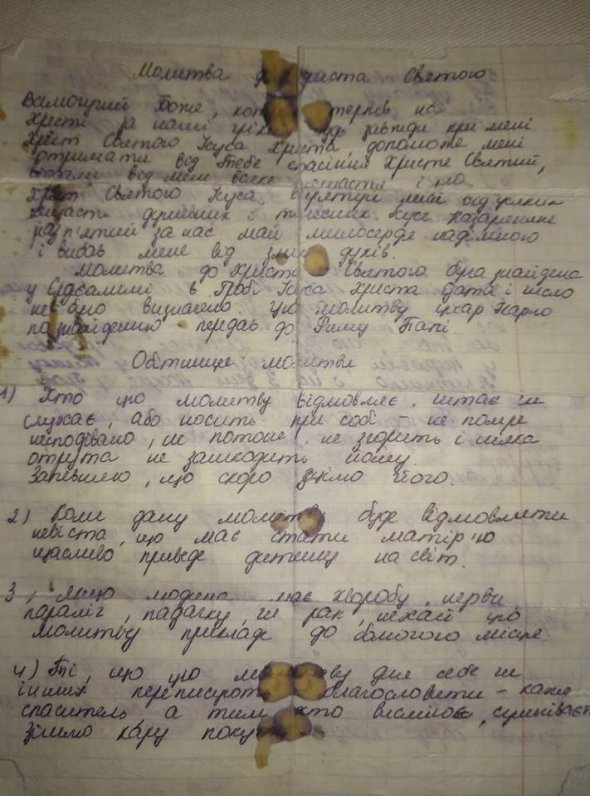 Молитва до Хреста Святого
Всемогучий Боже, котрий терпів на
Хресті за наші гріхи, будь завжди при мені
Хрест Святого Ісуса Христа, допоможе мені
отримати від Тебе спасіння Христе Святий,
віддали від мене всяке нещастя і зло
Хрест Святого Ісуса. мені від усяких
нещасть душевних і тілесних. Ісусе Назарянине
розп'ятий за нас май милосердя надімною
і визволь мене від злих духів.
Молитва до Христа Святого була знайдена
у Єрусалимі в Гробі Ісуса Христа дата і число
не було визначено. Цю молитву цісар Карло
по знайденню передав до Риму Папі
Обітниця молитви
1) Хто цю молитву відмовляє, читає чи
слухає, або носить при собі – не помре
несподівано, не потоне, не згорить і ніяка
отрута не зашкодить йому.
Запевняю, що скоро його.
2) Коли дану молитву буде відмовляти
невіста, що має стати матір'ю
щасливо приведе дитину на світ.
3) Якщо людина має хворобу, нерви,
параліч, падачку, чи рак, нехай цю
молитву прикладе до болючого місця.
4) Ті, що цю молитву для себе чи
інших переписують благословенні – каже
спаситель а тим хто висміює,
зішлю кару